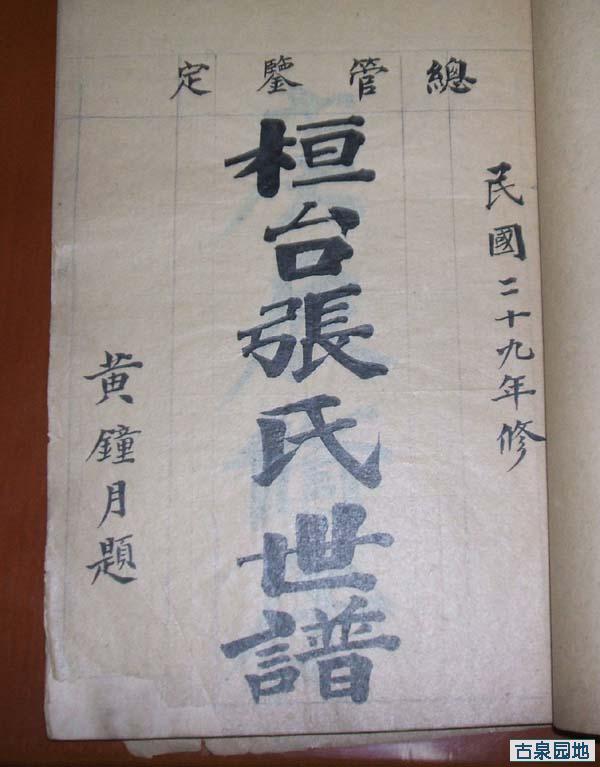 總管鑒定
民國二十九年修
桓台張氏世譜
黃鐘月題
古泉园地